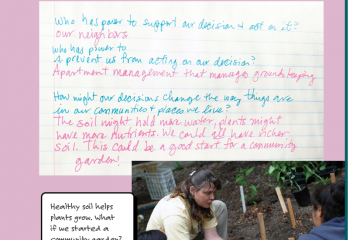 Who has power to support our decision & act on it?
our neighbors
who has power to
prevent us from acting on our decision?
Apartment management that manages groundskeeping
How might our decisions change the way things are
in our communities & places we live?
The soil might hold more water, plants might
have more nutrients. We could all have richer
soil. This could be a good start for a community
garden
Healthy soil helps
plants grow. What
if we started a
community garden?